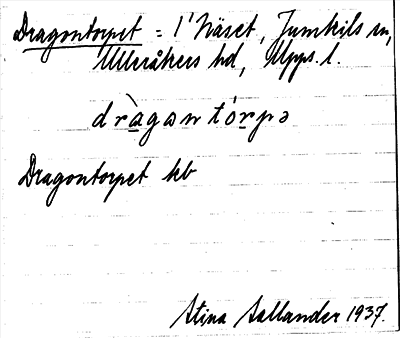 Dragontorpet = 1' Näset, Jumkils sn,
Ulleråkers hd, Upps. l.
dràgantórpə
Dragontorpet hb
Stina Sallander 1937.